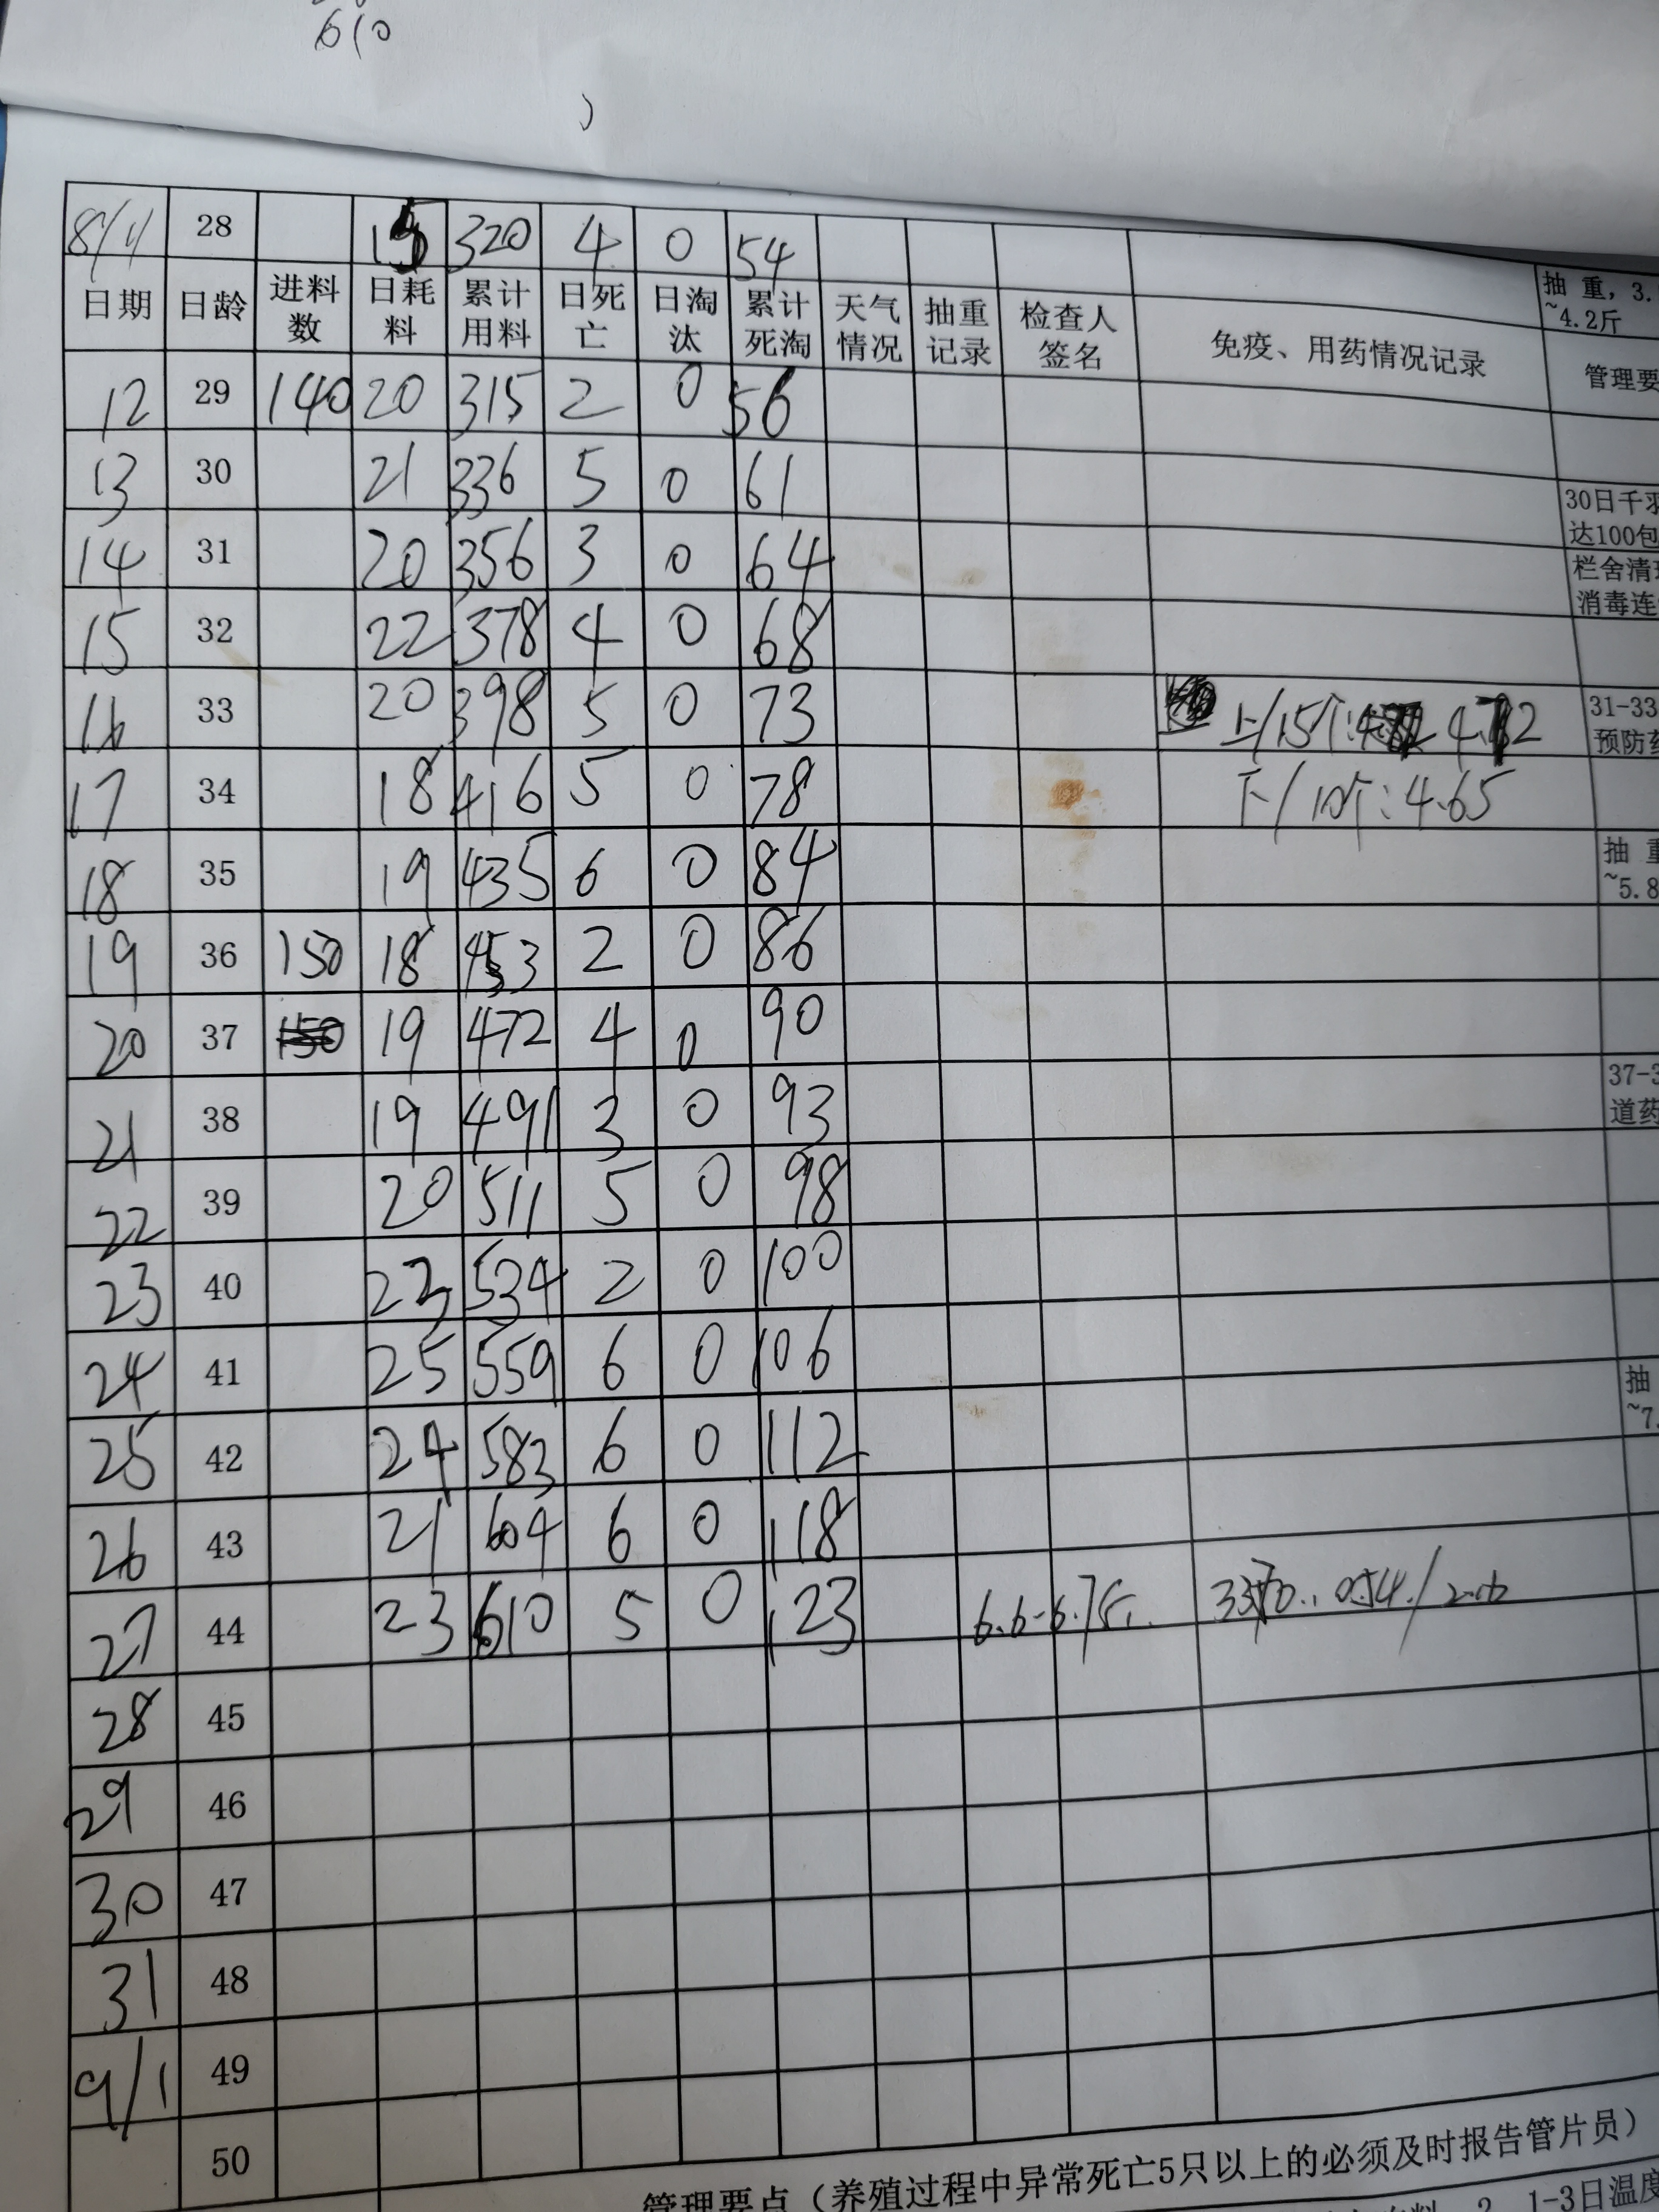 610
8/11 28 15 320 4 0 54 抽 重，3.
~4.2斤
日期 日龄 进料数 日耗料 累计用料 日死亡 日淘汰 累计死淘 天气情况 抽重记录 检查人签名 免疫、用药情况记录 管理要
12 29 140 20 315 2 0 56
13 30 21 336 5 0 61 30日千
达100包
14 31 20 356 3 0 64 栏舍清
消毒连
15 32 22 378 4 0 68
16 33 20 398 5 0 73 上/15个: 4.82 31-33
预防药
17 34 18 416 5 0 78 下/10个: 4.65
18 35 19 435 6 0 84 抽 重
~5.8
19 36 150 18 453 2 0 86
20 37 150 19 472 4 0 90
21 38 19 491 3 0 93 37-3
道药
22 39 20 511 5 0 98
23 40 23 534 2 0 100
24 41 25 559 6 0 106 抽
~7.
25 42 24 583 6 0 112
26 43 21 604 6 0 118
27 44 23 610 5 0 123 6.6-6.7斤
28 45
29 46
30 47
31 48
9/1 49
50
管理要点（养殖过程中异常死亡5只以上的必须及时报告管片员）
2、1-3日温度